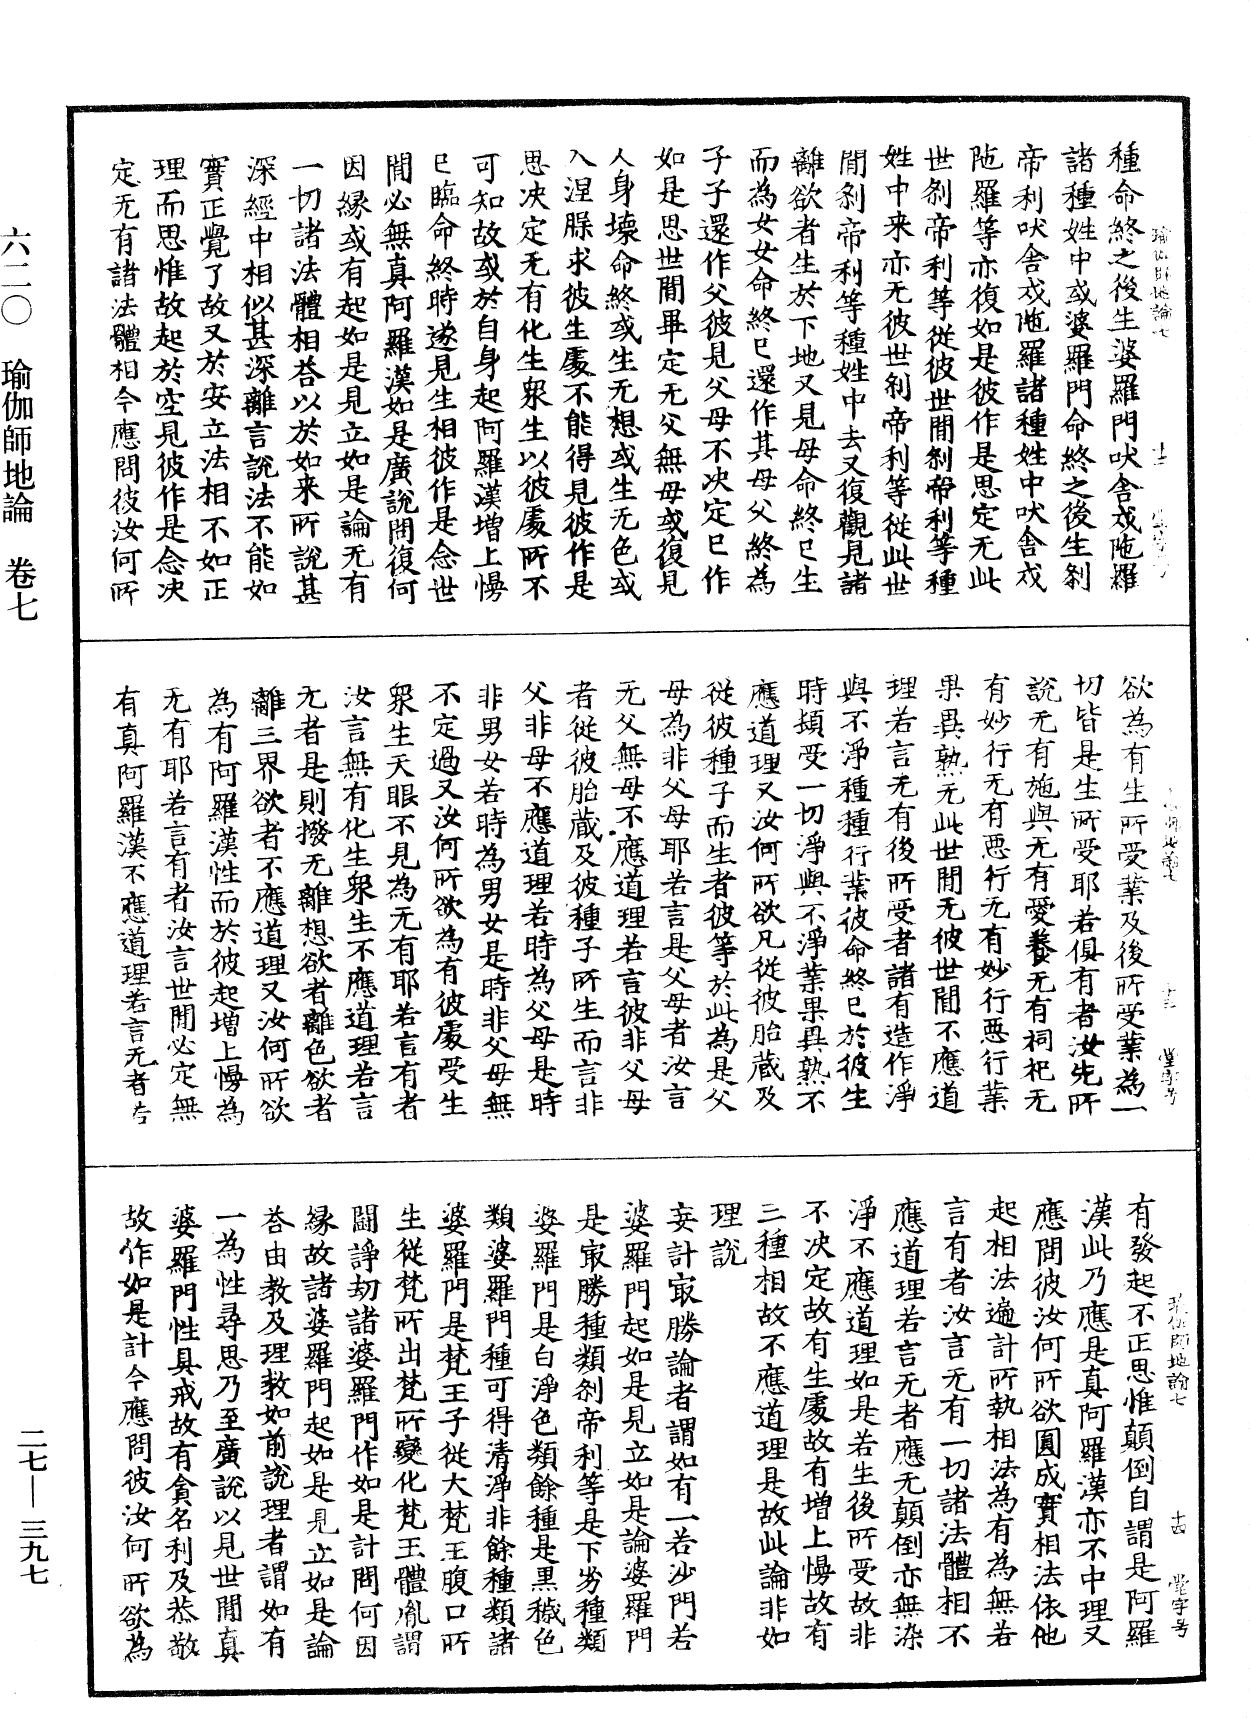 種命終之後生婆羅門吠舍戍陁羅
諸種姓中或婆羅門命終之後生刹
帝利吠舍戍陁羅諸種姓中吠舍戍
陁羅等亦復如是彼作是思定无此
世刹帝利等從彼世間刹帝利等種
姓中来亦无彼世刹帝利等從此世
間刹帝利等種姓中去又復觀見諸
離欲者生於下地又見母命終已生
而為女女命終已還作其母父終為
子子還作父彼見父母不決定已作
如是思世間畢定无父無母或復見
人身壞命終或生无想或生无色或
入涅槃求彼生處不能得見彼作是
思決定无有化生衆生以彼處所不
可知故或於自身起阿羅漢增上慢
已臨命終時遂見生相彼作是念世
間必無真阿羅漢如是廣說問復何
因緣或有起如是見立如是論无有
一切諸法體相答以於如来所說甚
深經中相似甚深離言說法不能如
實正覺了故又於安立法相不如正
理而思惟故起於空見彼作是念決
定无有諸法體相今應問彼汝何所
欲為有生所受業及後所受業為一
切皆是生所受耶若俱有者汝先所
說无有施與无有愛養无有祠祀无
有妙行无有惡行无有妙行惡行業
果異熟无此世間无彼世間不應道
理若言无有後所受者諸有造作淨
與不淨種種行業彼命終已於彼生
時頓受一切淨與不淨業果異熟不
應道理又汝何所欲凡從彼胎藏及
從彼種子而生者彼等於此為是父
母為非父母耶若言是父母者汝言
无父無母不應道理若言彼非父母
者從彼胎藏及彼種子所生而言非
父非母不應道理若時為父母是時
非男女若時為男女是時非父母無
不定過又汝何所欲為有彼處受生
衆生天眼不見為无有耶若言有者
汝言無有化生衆生不應道理若言
无者是則撥无離想欲者離色欲者
離三界欲者不應道理又汝何所欲
為有阿羅漢性而於彼起增上慢為
无有耶若言有者汝言世間必定無
有真阿羅漢不應道理若言无者若
有發起不正思惟顛倒自謂是阿羅
漢此乃應是真阿羅漢亦不中理又
應問彼汝何所欲圓成實相法依他
起相法遍計所執相法為有為無若
言有者汝言无有一切諸法體相不
應道理若言无者應无顛倒亦無染
淨不應道理如是若生後所受故非
不決定故有生處故有增上慢故有
三種相故不應道理是故此論非如
理說
妄計㝡勝論者謂如有一若沙門若
婆羅門起如是見立如是論婆羅門
是㝡勝種類刹帝利等是下劣種類
婆羅門是白淨色類餘種是黑穢色
類婆羅門種可得清淨非餘種類諸
婆羅門是梵王子從大梵王腹口所
生從梵所出梵所變化梵王體胤謂
鬪諍劫諸婆羅門作如是計問何因
緣故諸婆羅門起如是見立如是論
答由教及理教如前說理者謂如有
一為性尋思乃至廣說以見世間真
婆羅門性具戒故有貪名利及恭敬
故作如是計今應問彼汝何所欲為
瑜伽師地論七 十四 堂字号
六二〇 瑜伽師地論 卷七
二七—三九七